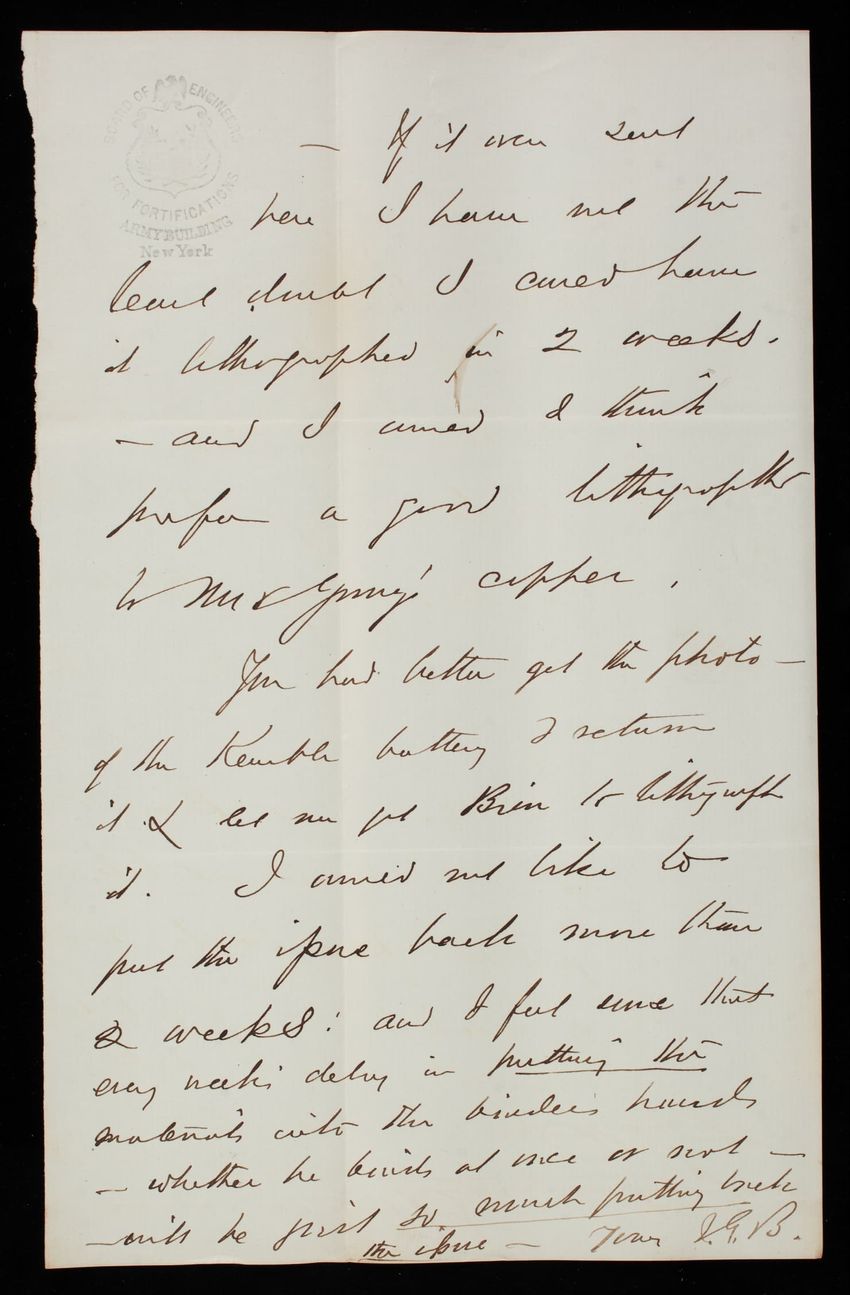 BOARD OF ENGINEERS
FOR FORTIFICATIONS
ARMY BUILDING
New York
— If it were sent
here I have not the
least doubt I could have
it lithographed in 2 weeks.
— and I would I think
prefer a good lithograph
to copper.
You had better get the photo—
of the Kemble battery & return
it & let me get Bien to lithograph
it. I would not like to
put the issue back more than
2 weeks: and I feel sure that
every week's delay in putting the
materials into the binder's hands
— whether he binds at once or not —
— will be just so much putting back
the issue — Yours